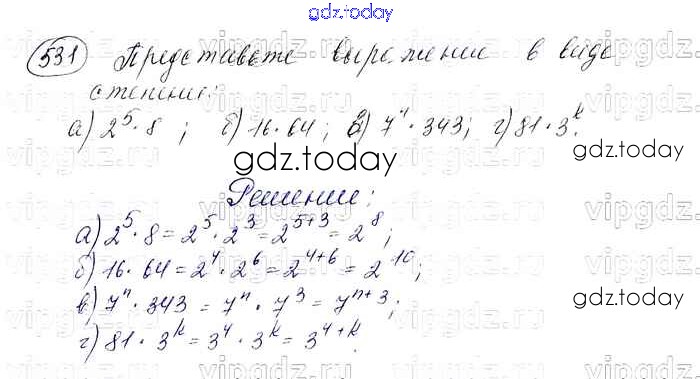 gdz.today
531 Представьте выражение в виде
степени:
а) 2⁵·8 ; б) 16·64 ; в) 7ⁿ·343; г) 81·3ᵏ.
gdz.today
gdz.today
Решение:
а) 2⁵·8 = 2⁵·2³ = 2⁵⁺³ = 2⁸;
б) 16·64 = 2⁴·2⁶ = 2⁴⁺⁶ = 2¹⁰;
в) 7ⁿ·343 = 7ⁿ·7³ = 7ⁿ⁺³;
gdz.today
г) 81·3ᵏ = 3⁴·3ᵏ = 3⁴⁺ᵏ.